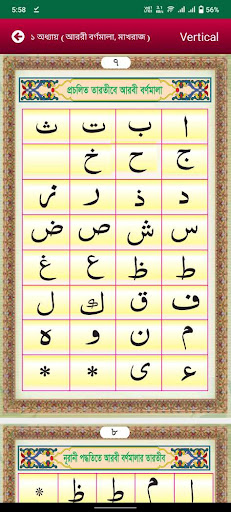 5:58 56%
১ অধ্যায় ( আরবী বর্ণমালা, মাখরাজ ) Vertical
৭
প্রচলিত তারতীবে আরবী বর্ণমালা
ا ب ت ث
ج ح خ
د ذ ر ز
س ش ص ض
ط ظ ع غ
ف ق ك ل
م ن و ه
ء ى * *
৮
নূরানী পদ্ধতিতে আরবী বর্ণমালার তারতীব
ا م ط س *